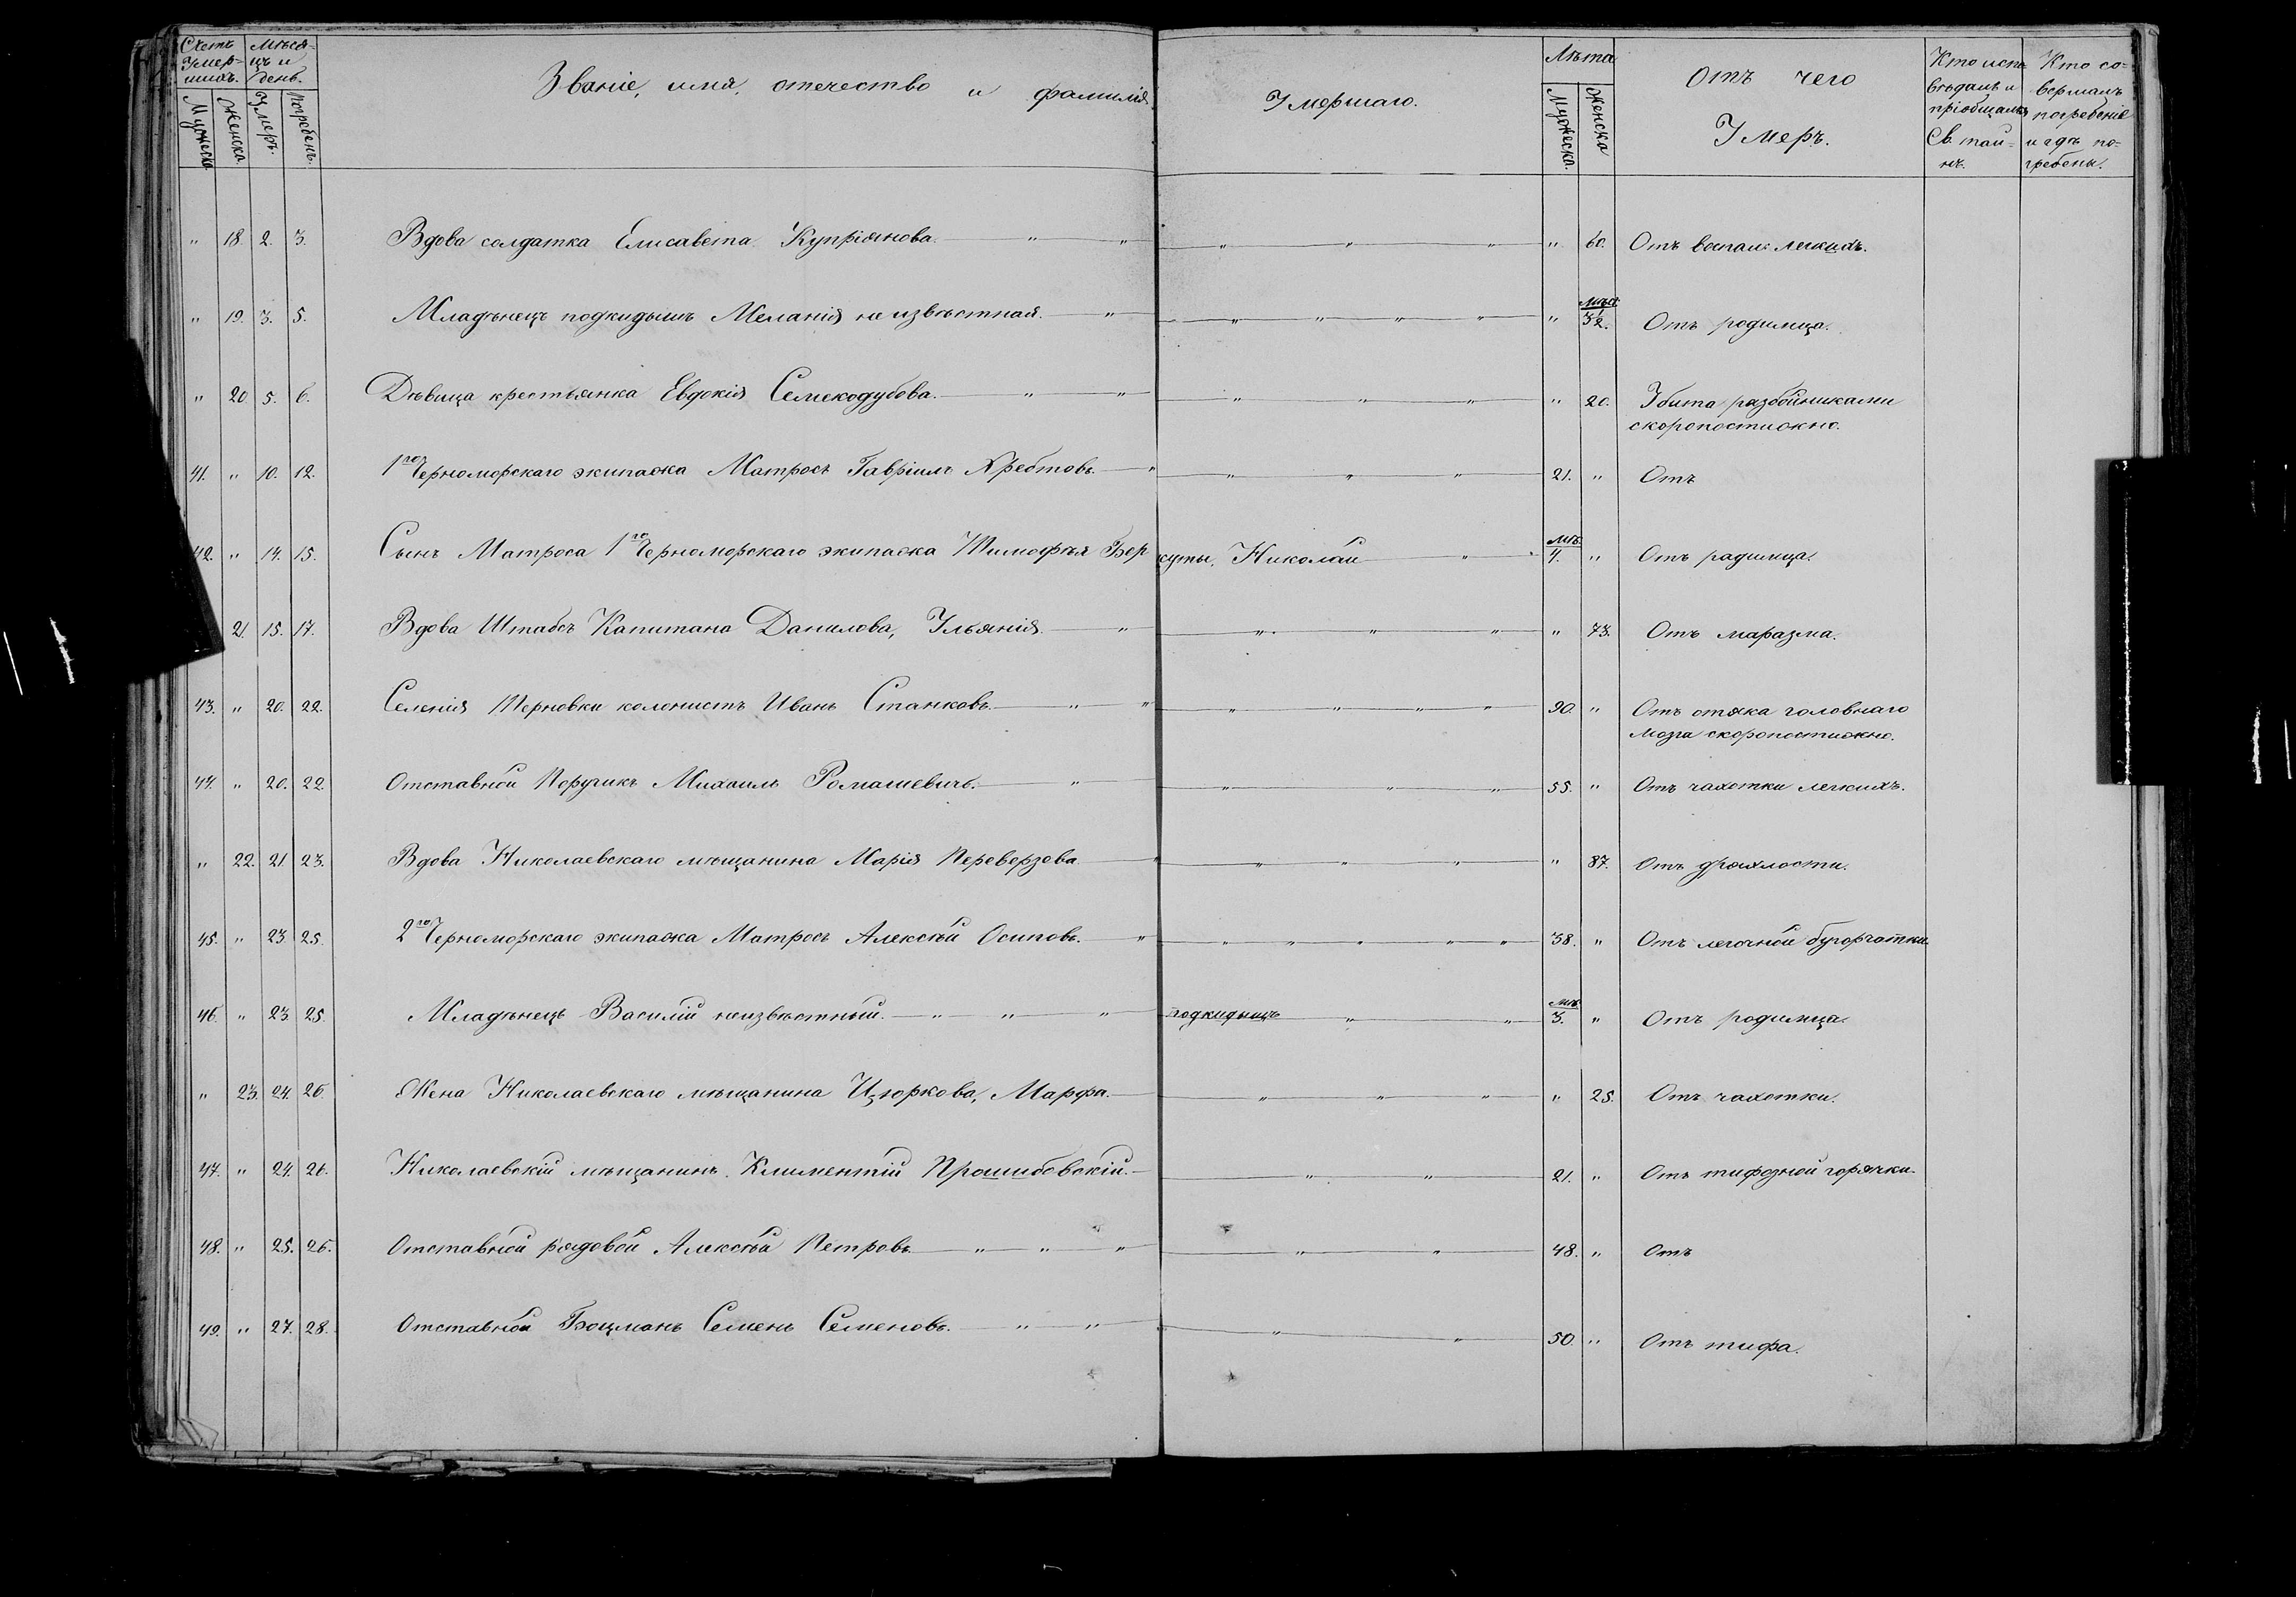 Счетъ Умер- шихъ. Мѣся- цъ и день. Званіе, имя, отечество и фамилія Умершаго. Лѣта Отъ чего Умеръ. Кто испо вѣдалъ и пріобщалъ Св. тай- нъ. Кто со- вершалъ погребеніе и гдѣ по- гребены.
Мужеска. Женска. Умеръ. Погребенъ. Мужеска. Женска
" 18. 2. 3. Вдова солдатка Елисавета Купріянова. " " " " " " 60. Отъ воспал: легкихъ.
" 19. 3. 5. Младѣнецъ подкидышъ Меланія не извѣстная. " " " " " " мѣс. Отъ родимца.
" 20 5. 6. Дѣвица крестьянка Евдокія Семекодубова. " " " " " " 20. Убита разбойниками
скоропостижно.
41. " 10. 12. 1го Черноморскаго экипажа Матросъ Гавріилъ Хребтовъ. " " " " 21. " Отъ
42. " 14. 15. Сынъ Матроса 1го Черноморскаго экипажа Тимофѣя Бер куты, Николай " " мѣ. 4. " Отъ радимца.
21. 15. 17. Вдова Штабсъ Капитана Данилова, Ульянія. " " " " " 73. Отъ маразма.
43. " 20. 22. Селенія Терновки колонистъ Иванъ Станковъ. " " " " " " 90. " Отъ отяка головнаго
мозга скоропостижно.
44. " 20. 22 Отставной Поручикъ Михаилъ Ромашевичъ. " " " " 55. " Отъ чахотки легкихъ.
" 22. 21. 23. Вдова Николаевскаго мѣщанина Марія Переверзева " " " " " 87. Отъ дряхлости.
45. " 23. 25. 2го Черноморскаго экипажа Матросъ Алексѣй Осиповъ. " " " " " " 38. " Отъ легочной бугорчатки.
46. " 23. 25. Младѣнецъ Василій неизвѣстный. " " " подкидышъ " " мѣ 3. " Отъ родимца.
" 23. 24. 26. Жена Николаевскаго мѣщанина Цюркова, Марфа. " " " " 25. Отъ чахотки.
47. " 24. 26. Николаевскій мѣщанинъ Климентій Прошибовскій. " " 21. " Отъ тифозной горячки.
48. " 25. 26. Отставной рядовой Алексѣй Петровъ " " " " " 48. " Отъ
49. " 27. 28. Отставной Боцманъ Семенъ Семеновъ. " " " " 50. " Отъ тифа.